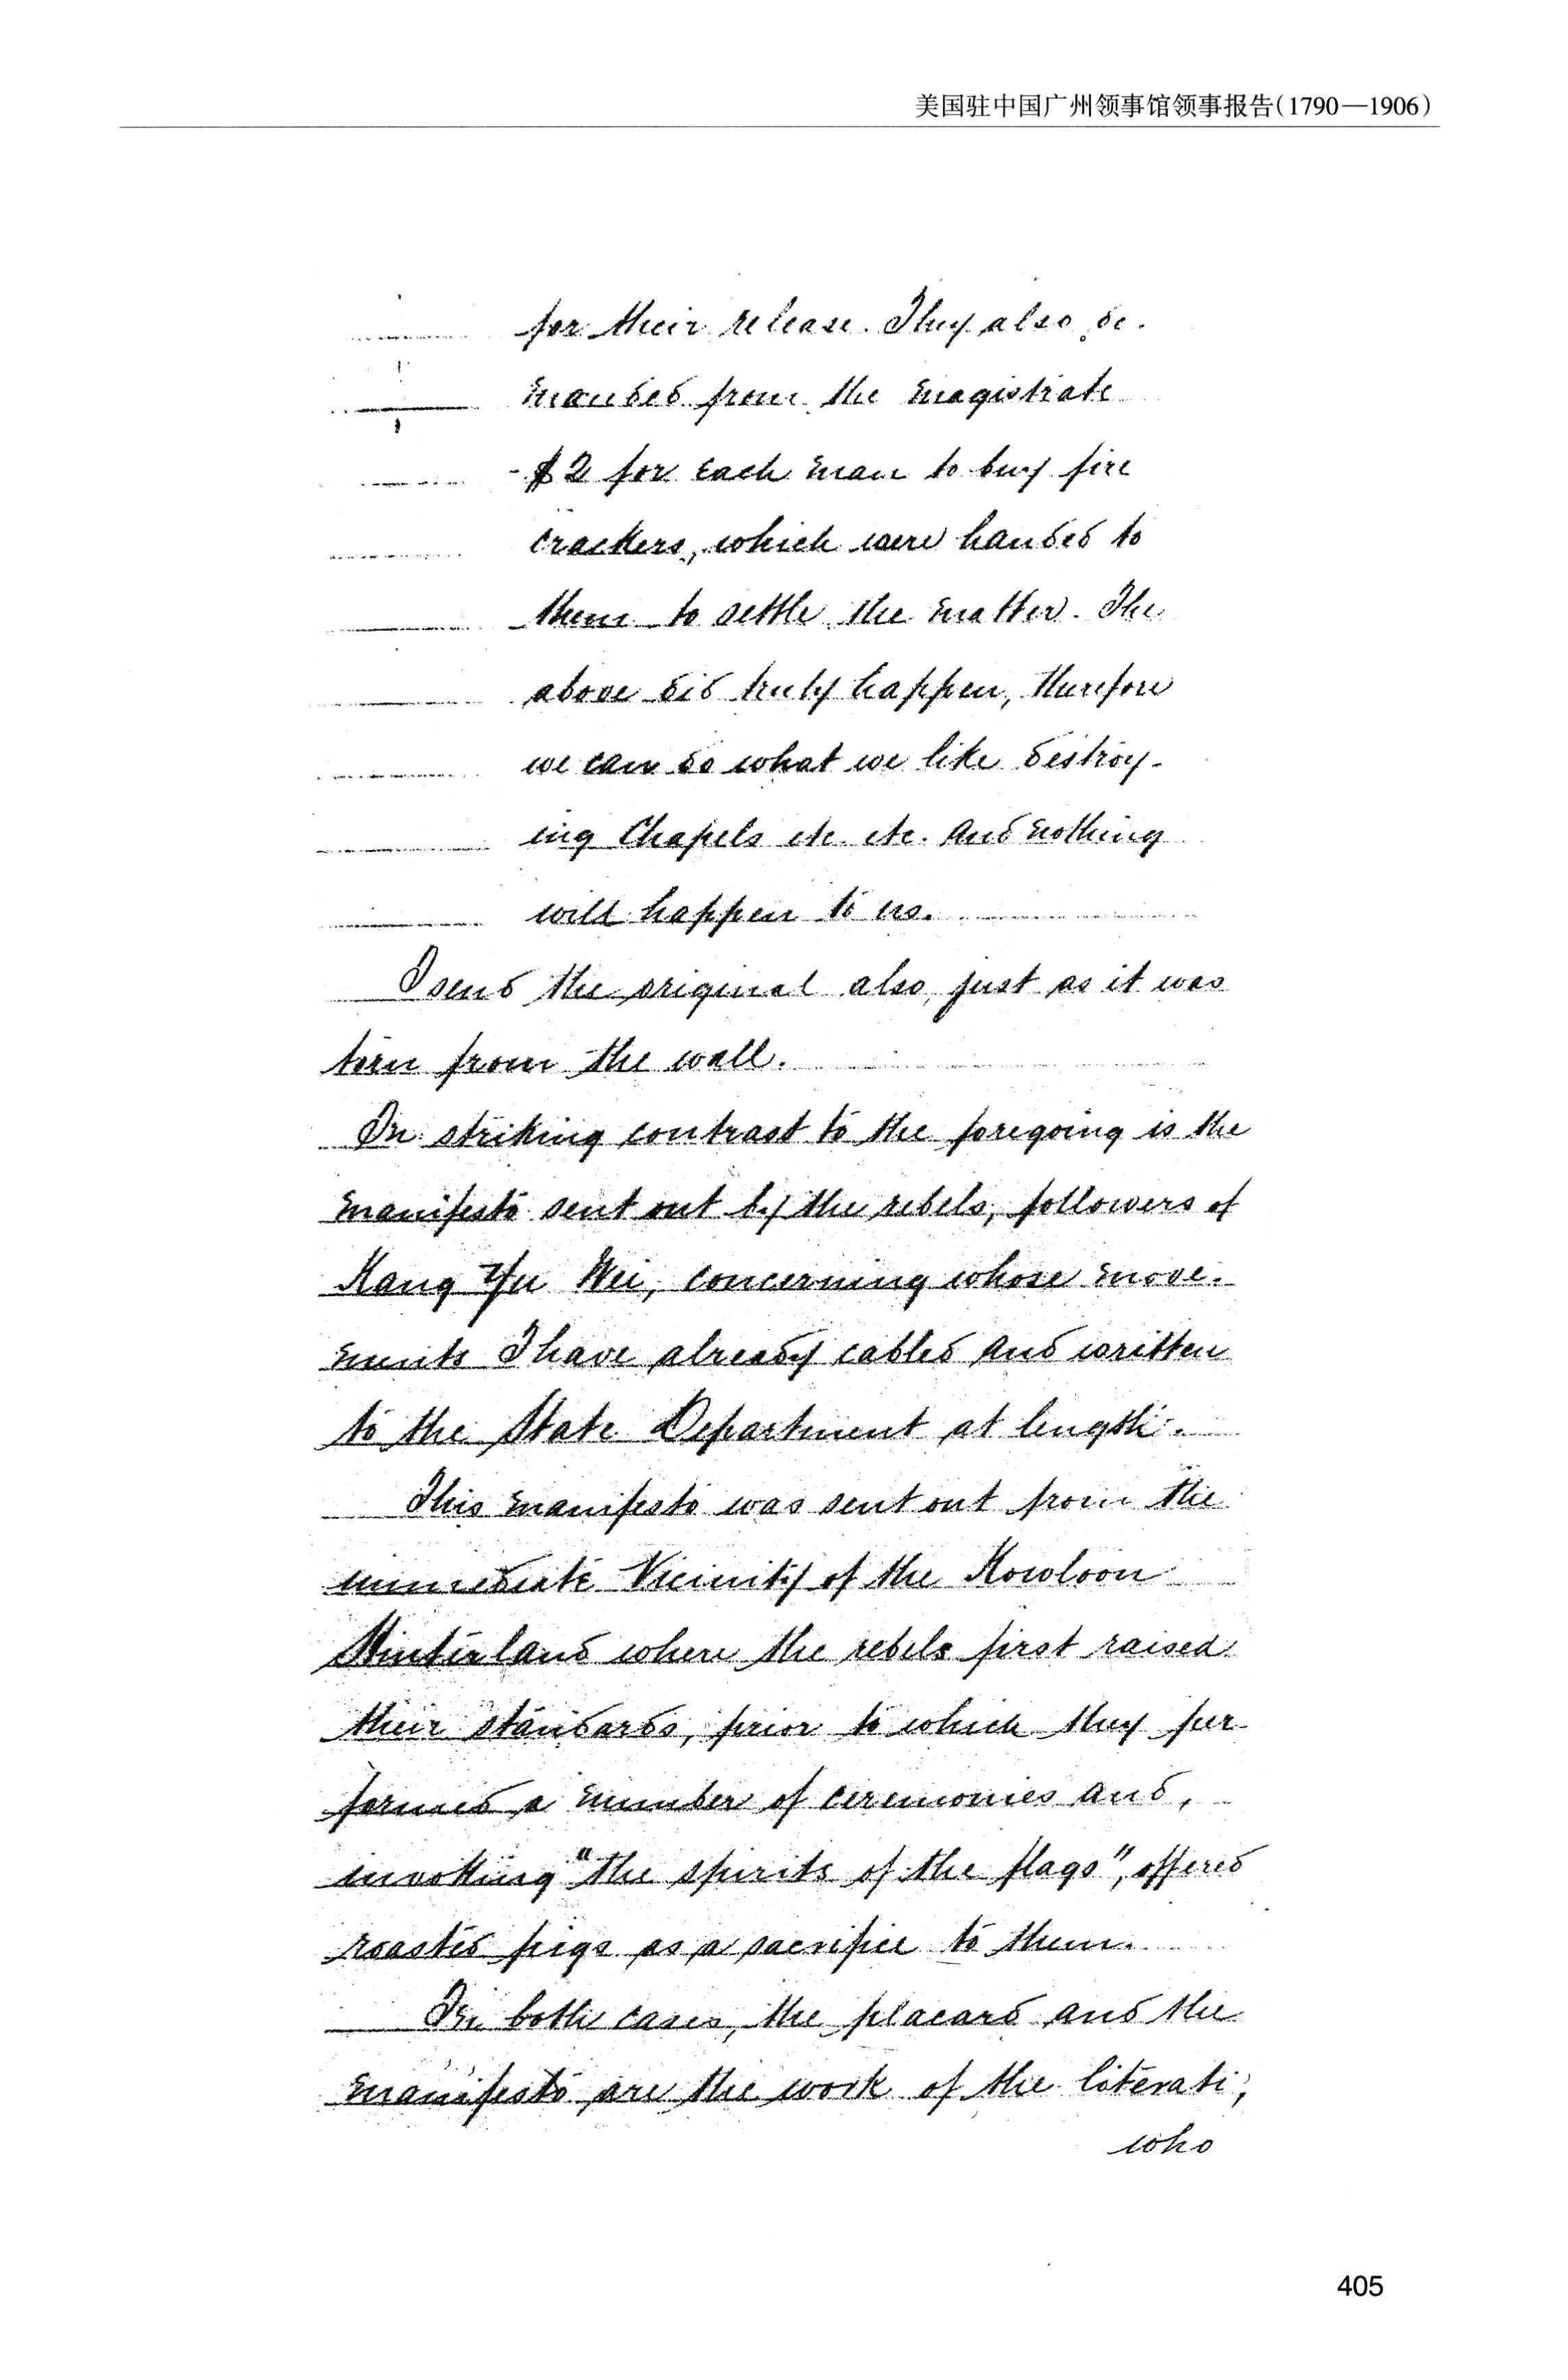 美国驻中国广州领事馆领事报告(1790—1906)
for their release. They also de-
manded from the magistrate
$2 for each man to buy fire
crackers, which were handed to
them to settle the matter. The
above did truly happen, therefore
we can do what we like destroy-
ing Chapels etc. etc. and nothing
will happen to us.
I send the original also, just as it was
torn from the wall.
In striking contrast to the foregoing is the
manifesto sent out by the rebels, followers of
Kang Yu Wei, concerning whose move-
ments I have already cabled and written
to the State Department at length.
This manifesto was sent out from the
immediate Vicinity of the Kowloon
Hinterland where the rebels first raised
their standards, prior to which they per-
formed a number of ceremonies and,
invoking "the spirits of the flags", offered
roasted pigs as a sacrifice to them.
In both cases, the placard and the
manifesto are the work of the literati,
who
405